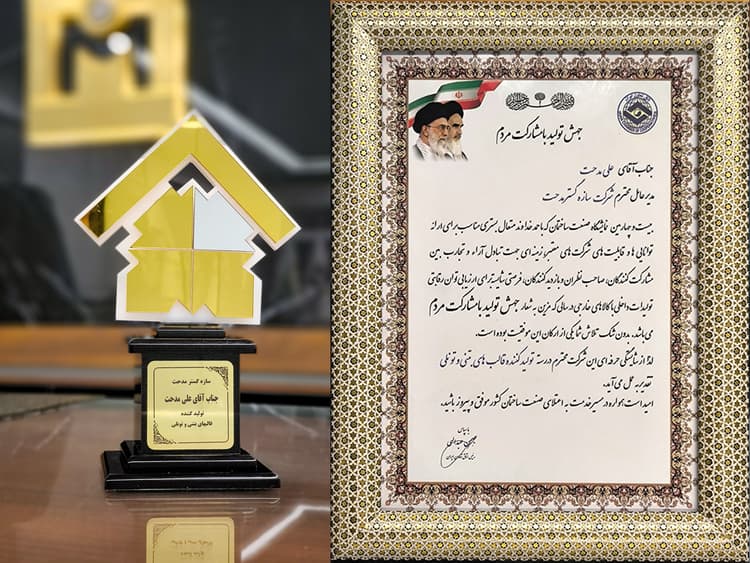 M
سازه گستر مدحت
جناب آقای علی مدحت
تولید کننده
قالبهای بتنی و تونلی
جهش تولید با مشارکت مردم
جناب آقای علی مدحت
مدیر عامل محترم شرکت سازه گستر مدحت
بیست و چهارمین نمایشگاه صنعت ساختمان که با حمد خداوند متعال بستری مناسب برای ارائه
توانایی ها و قابلیت های شرکت های معتبر، زمینه ای جهت تبادل آراء و تجارب بین
مشارکت کنندگان، صاحب نظران و بازدید کنندگان، فرصتی شایسته برای ارزیابی توان رقابتی
تولیدات داخلی با کالاهای خارجی در سالی که مزین به شعار جهش تولید با مشارکت مردم
می باشد. بدون شک تلاش شما یکی از ارکان این موفقیت بوده است.
لذا از شایستگی حرفه ای این شرکت محترم در رسته تولید کننده قالب های بتنی و تونلی
تقدیر به عمل می آید.
امید است همواره در مسیر خدمت به اعتلای صنعت ساختمان کشور موفق و پیروز باشید.
با سپاس